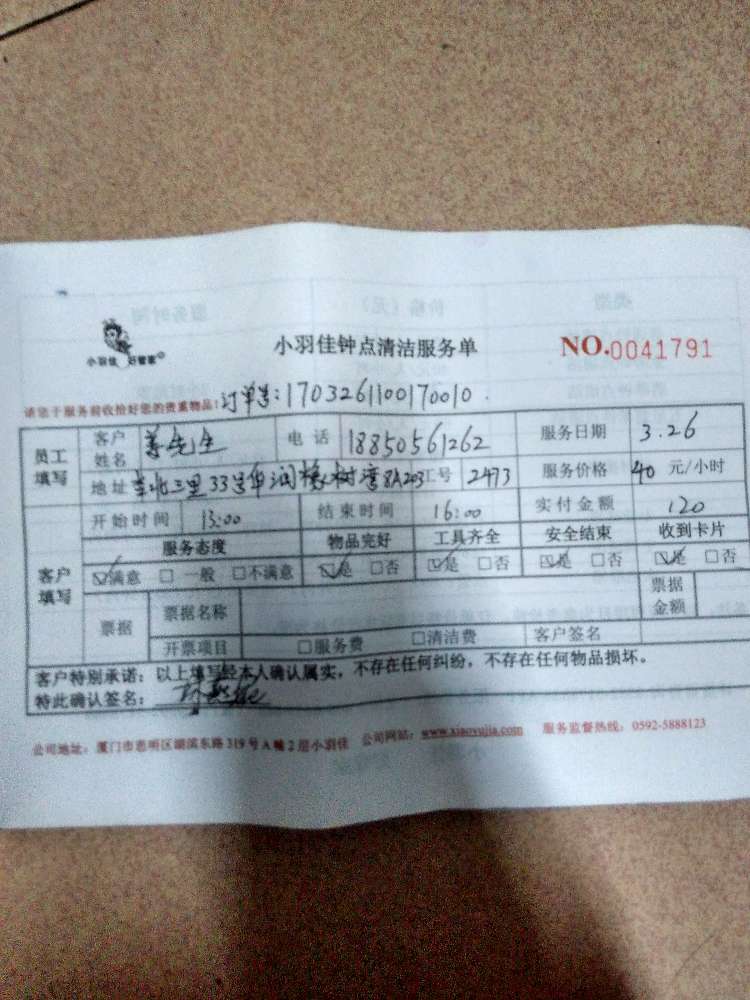 小羽佳 好管家
小羽佳钟点清洁服务单
NO.0041791
请您于服务前收拾好您的贵重物品! 订单号:1703261100170010.
员工填写 客户姓名 先生 电话 18850561262 服务日期 3.26
地址 三里33号 润橡树湾8A203 工号 2473 服务价格 40 元/小时
客户填写 开始时间 13:00 结束时间 16:00 实付金额 120
服务态度 物品完好 工具齐全 安全结束 收到卡片
☑满意 □一般 □不满意 ☑是 □否 ☑是 □否 ☑是 □否 ☑是 □否
票据 票据名称 票据金额
开票项目 □服务费 □清洁费 客户签名
客户特别承诺:以上填写经本人确认属实,不存在任何纠纷,不存在任何物品损坏。
特此确认签名:
公司地址:厦门市思明区湖滨东路319号A幢2层小羽佳 公司网站:www.xiaoyujia.com 服务监督热线:0592-5888123